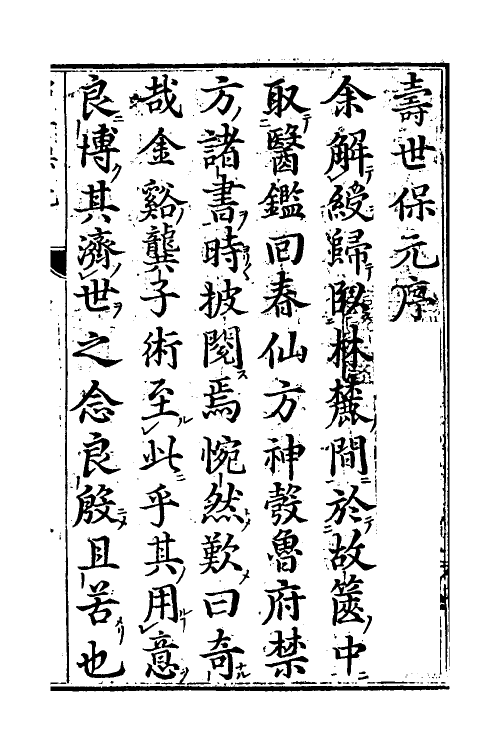 壽世保元序
余解綬歸臥林麓間於故篋中
取醫鑑回春仙方神彀魯府禁
方諸書時披閱焉惋然歎曰奇
哉金谿龔子術至此乎其用意
良博其濟世之念良殷且苦也